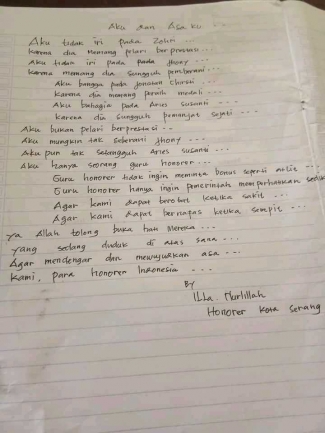 Aku dan Asa ku ...
Aku tidak iri pada Zohri ...
Karena dia memang pelari berprestasi ...
Aku tidak iri pada pada Jhony ...
Karena memang dia sungguh pemberani ...
Aku bangga pada Jonatan Christi ...
Karena dia memang peraih medali ...
Aku bahagia pada Aries Susanti ...
Karena dia sungguh pemanjat sejati ...
Aku bukan pelari berprestasi ...
Aku mungkin tak seberani Jhony ...
Aku pun tak setangguh Aries Susanti ...
Aku hanya seorang guru honorer ...
Guru honorer tidak ingin meminta bonus seperti atlit ...
Guru honorer hanya ingin pemerintah memperhatikan
Agar kami dapat berobat ketika sakit ...
Agar kami dapat bernapas ketika sempit ...
Ya Allah tolong buka hati mereka ...
yang sedang duduk di atas sana ...
Agar mendengar dan mewujudkan asa ...
Kami, para honorer Indonesia ...
By
Nurlillah
Honorer Kota Serang